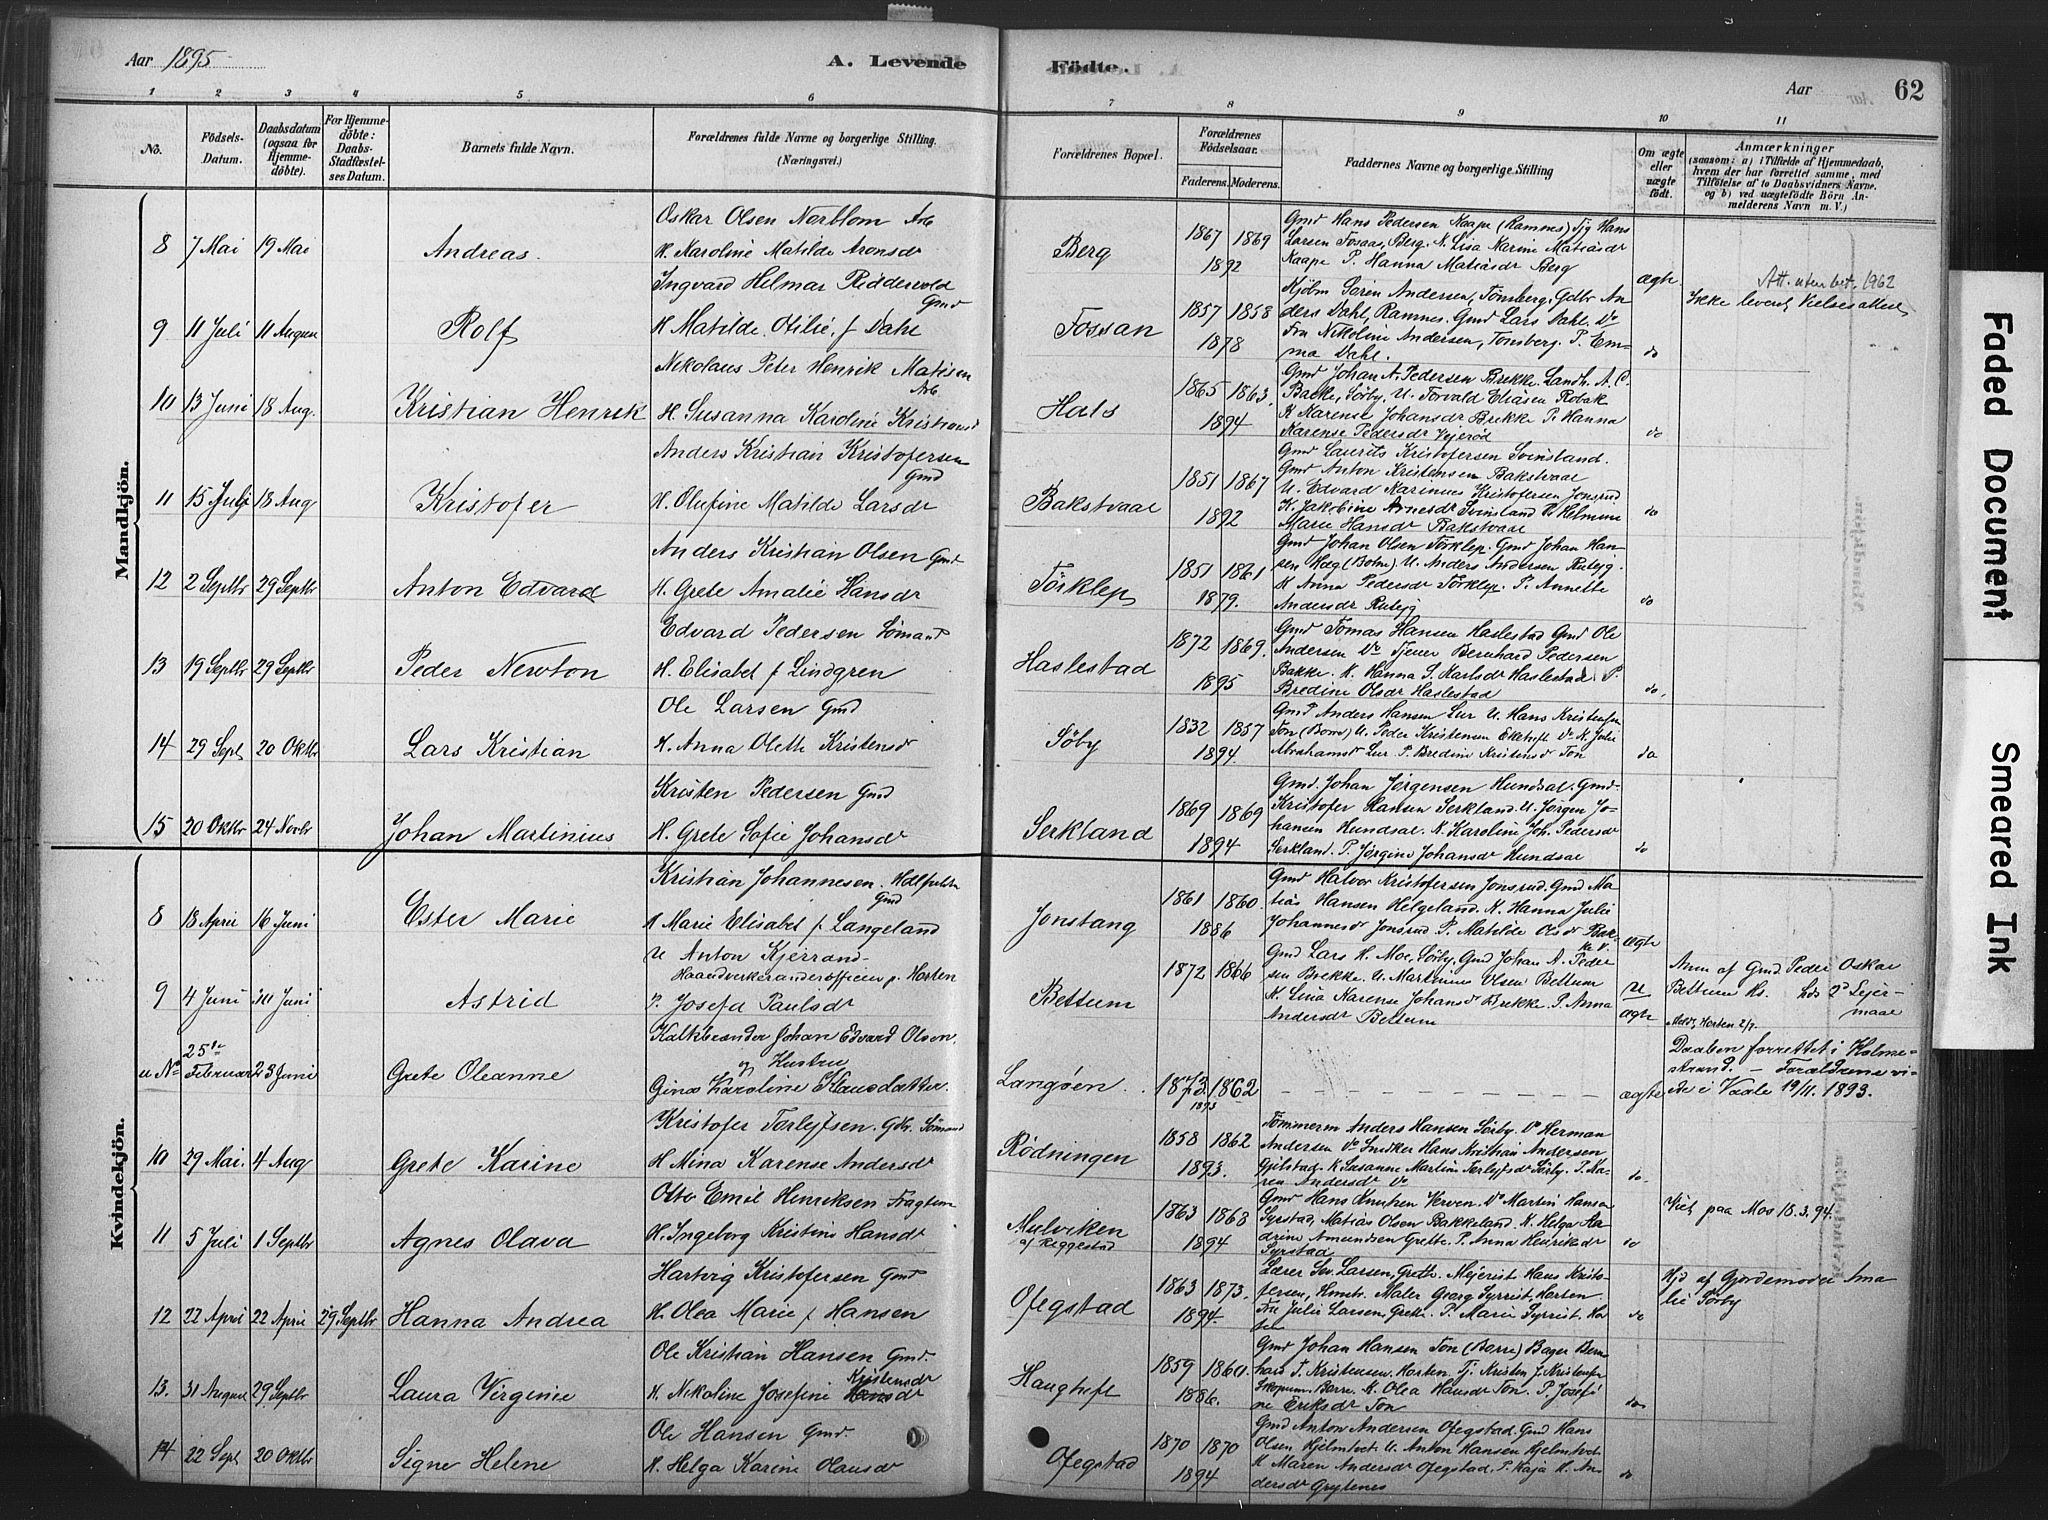 Aar 1895
A. Levende
Födte.
Aar
62
1 2 3 4 5 6 7 8 9 10 11
No.
Födsels-
Datum.
Daabsdatum
(ogsaa for
Hjemme-
døbte).
For Hjemme-
døbte:
Daabs-
Stadfæstel-
ses Datum.
Barnets fulde Navn.
Forældrenes fulde Navne og borgerlige Stilling.
(Næringsvei.)
Forældrenes Bopæl.
Forældrenes
Fødselsaar.
Faderens. Moderens.
Faddernes Navne og borgerlige Stilling
Om ægte
eller
uægte
født.
Anmærkninger
(saasom: a) i Tilfælde af Hjemmedaab,
hvem der har forrettet samme, med
Tilföielse af to Daabsvidners Navne.
og b) ved uægtefödte Börn An-
melderens Navn m. V.)
Mandkjön.
8 7 Mai 19 Mai Andreas.
Oskar Olsen Nærblom Arb
H. Karoline Matilde Aronsdr
Berg
1867 1869
1892
Gmd Hans Pedersen Kaape (Ramnes) Tj Hans
Larsen Fosaas, Berg. K. Lisa Karine Matiasdr
Kaape P. Hanna Matiasdr Berg
ægte
9 11 Juli 11 August Rolf
Ingvard Helmar Riddervold
Gmd
H Matilde Otilie, f Dahl
Fossan
1857 1858
1878
Kjøbm Søren Andersen, Tønsberg, Gdbr An
ders Dahl, Ramnes. Gmd Lars Dahl. Do
Fru Nikoline Andersen, Tønsberg. P. Em-
ma Dahl.
do
Att. uten bet. 1962
Ikke levert Vielsesattest
10 13 Juni 18 Aug. Kristian Henrik
Nikolaus Peter Henrik Matisen
Arb.
H. Susanna Karoline Kristiansdr
Hals
1865 1863.
1894
Gmd Johan A. Pedersen Brekke. Landh. A. C.
Bache, Søby. U. Torvald Eliasen Robak
K Karense Johansdr Brekke P. Hanna
Karense Pedersdr Vejerød
do
11 15 Juli 18 Aug Kristofer
Anders Kristian Kristofersen
Gmd
H. Olufine Matilde Larsdr
Bakstvaal
1851 1867
1892
Gmd Laurits Kristofersen Svinsland.
Gmd Anton Kristensen Bakstvaal
U. Edvard Marinus Kristofersen Jonsrud
K. Jakobine Arnesdr Svinsland P. Helmine
Marie Hansdr Bakstvaal
do
12 2 Septbr 29 Septbr Anton Edvard
Anders Kristian Olsen Gmd
H. Grete Amalie Hansdr
Tørklep
1851 1861
1879.
Gmd Johan Olsen Tørklep. Gmd Johan Han-
sen Hag (Botne) U. Anders Andersen Rubejg.
K Anna Pedersdr Tørklep. P. Annette
Andersdr Rubejg
do
13 19 Septbr 29 Septbr Peder Newton
Edvard Pedersen Sømand
H. Elisabet f Lindgren
Haslestad
1872 1869.
1895
Gmd Tomas Hansen Haslestad Gmd Ole
Andersen Do Tjener Bernhard Pedersen
Bakke. K. Hanna S. Karlsdr Haslestad. P.
Bredine Olsdr Haslestad
do.
14 29 Sept 20 Oktbr Lars Kristian
Ole Larsen Gmd
H. Anna Olette Kristensdr
Søby
1832 1857
1894.
Gmd Anders Hansen Lur U. Hans Kristensen
Ton (Borre) U. Peder Kristensen Eketuft Do K. Julie
Abrahamsdr Lur P. Bredine Kristensdr Ton
do
15 20 Oktbr 24 Novbr Johan Martinius
Kristen Pedersen Gmd
H. Grete Sofie Johansdr
Serkland
1869 1869
1894
Gmd. Johan Jørgensen Hundsal. Gmd-
Kristofer Hansen Serkland. U. Jørgen Jo-
hansen Hundsal. K. Karoline Joh. Pedersdr
Serkland. P. Jørgine Johansdr Hundsal
do
Kvindekjön.
8 18 April 16 Juni Ester Marie
Kristian Johannesen.
Gmd
H Marie Elisabet f. Langeland
Jonstang
1861 1860.
1886
Gmd Halvor Kristofersen Jonsrud. Gmd Ma-
tias Hansen Helgeland. K. Hanna Julie
Johannesdr Jonsrud P. Matilde Olsdr Bak-
ke V.
ægte
9 4 Juni 30 Juni Astrid
U Anton Kjerrand-
Haandverkerunderofficier p. Horten
P. Josefa Paulsdr
Bettum
1872 1866
Gmd Lars H. Moe, Søby. Gmd Johan A. Peder
sen Brekke. U. Martinius Olsen Bettum
K. Lina Karense Johansdr Brekke. P. Anna
Andersdr Bettum
u
ægte
Anm af Gmd Peder Oskar
Bettum Hs. hds 2d Lejer-
maal
Meldt Horten 2/7.
u No 25de Februar 23 Juni Grete Oleanne
Kalkbrænder Johan Edvard Olsen
og Hustru
Gina Karoline Klausdatter
Langøen.
1873. 1862
1893
ægte
Daaben forrettet i Holme-
strand. - Forældrene vi-
ede i Vaale 19/11. 1893.
10 29 Mai. 4 Aug Grete Karine
Kristofer Torlejfsen. Gdb. Sømand
H. Mina Karense Andersdr
Rødningen
1858 1862
1893.
Tømmerm Anders Hansen Sørby. Do Herman
Andersen Do Snedker Hans Kristian Andersen
Gjilstad. K Susanne Martine Torlejfsdr Sørby. P. Ka-
ren Andersdr Do
do.
11 5 Juli 1 Septbr Agnes Olava
Otto Emil Henriksen Fragtem
H. Ingeborg Kristine Hansdr
Mulviken
af Reggestad
1863 1868
1894
Gmd Hans Knutsen Verven. Do Martin Hansen
Syrstad, Matias Olsen Bakkeland. K. Helga Ka-
drine Amundsen Grette. P. Anna Henriksdr
Syrstad
do
Viet paa Mos 18.3.94.
12 22 April 22 April 29 Septbr Hanna Andrea
Hartvig Kristofersen Gmd
H. Olea Marie f Hansen
Ofegstad
1863 1873.
1894.
Lærer Sev. Larsen, Grette. Mejerist Hans Kristo-
fersen, Hmst. Maler Georg Syrrist, Horten.
Fru Julie Larsen, Grette. P. Marie Syrrist. Hor-
ten
do
Hjd af Gjordemoder Ama
lie Sørby
13. 31 August 29 Septbr Laura Virginie
Ole Kristian Hansen Gmd.
Kristensdr
H. Nikoline Josefine Hansdr
Haugtuft
1859 1860.
1886.
Gmd Johan Hansen Ton (Borre) Bager Bern-
hard T. Kristensen Horten. Tj. Kristen J. Kristensen
Skopum. Borre. K. Olea Hansdr Ton. P. Josefi-
ne Eriksdr Ton
do
14 22 Sept 20 Oktbr Signe Helene
Ole Hansen Gmd.
H. Helga Karine Olausdr
Ofegstad
1870 1870
1894
Gmd Anton Andersen Ofegstad. Gmd Hans
Olsen Hjelmtvet. U. Anton Hansen Hjelmtvet.
K Maren Andersdr Ofegstad. P. Kaja K. An-
dersdr Grytenes
do.
Faded Document
Smeared Ink